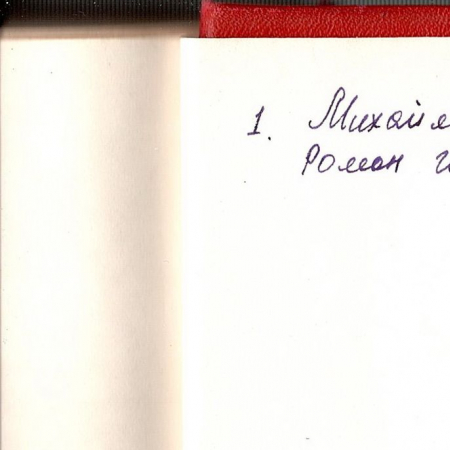 1. Михайл
Роман